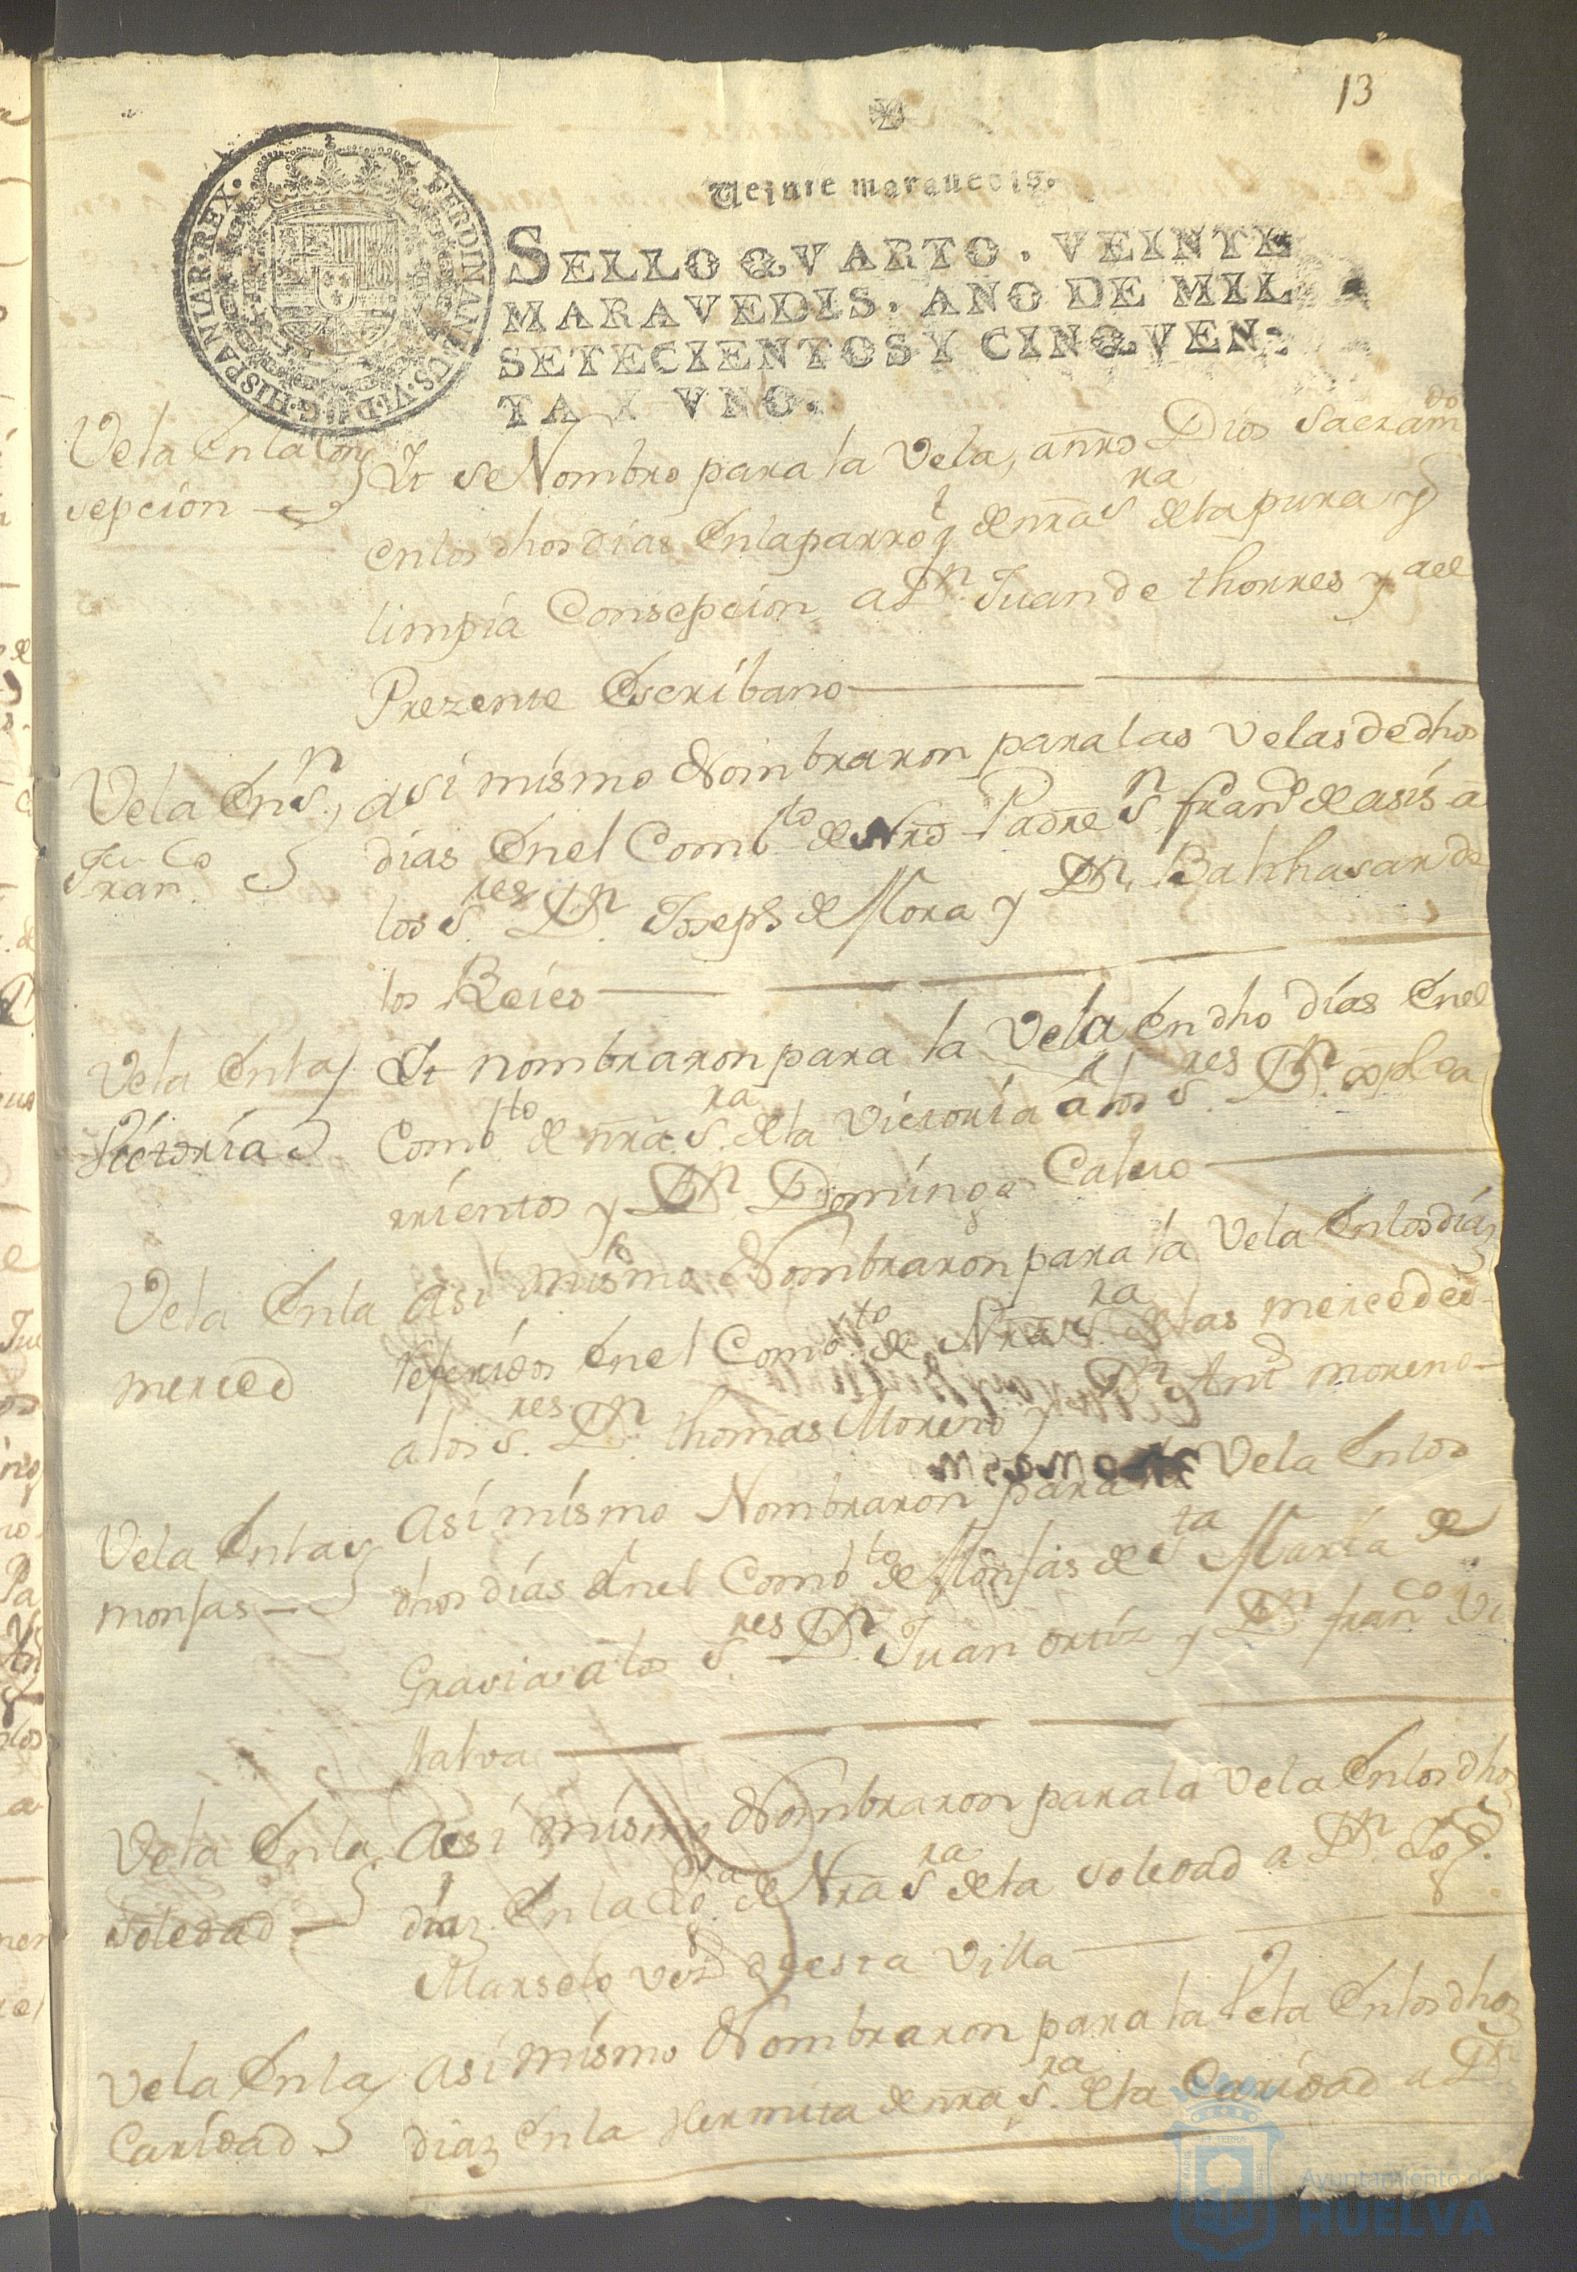 13
Veinte maravedis.
SELLO QVARTO, VEINTE
MARAVEDIS, AÑO DE MIL
SETECIENTOS Y CINQVEN-
TA Y VNO.
FERDINANDVS.VI.D.G.HISPANIAR.REX.
Vela en la Con
sepcion
Yt se Nombro para la Vela, a nro Dios Sacramdo
en los dhos dias en la parroq de nra Sra de la pura y
limpia Consepcion a Dn. Juan de thorres y a el
Prezente Escribano
Vela en Sn.
Franco
asi mismo Nombraron para las Velas de dhos
dias en el Combto de Nro Padre Sn. frano de asis a
los Sres Dn. Joseph de Mora y Dn. Balthasar de
los Reies
Vela en la
Victoria
Yt nombraron para la Vela en dho dias en el
Combto de nra Sra de la Victoria a los Sres Dn.
rrientos y Dn Domingo Calvo
Vela en la
merced
asi mismo Nombraron para la Vela en los dias
referidos en el Combto de Nra Sra de las mercedes
a los Sres Dn thomas Moreno y Dn Anto moreno
Vela en las
monjas
asi mismo Nombraron para la Vela en los
dhos dias en el Combto de Monjas de Sta Maria de
Grasia a los Sres Dn. Juan ortiz y Dn franco Vi
llalva
Vela en la
Soledad
asi mismo Nombraron para la Vela en los dhos
diaz en la de Nra Sra de la Soledad a Dn.
Marselo vezo de esta Villa
Vela en la
Caridad
asi mismo Nombraron para la Vela en los dhoz
diaz en la Hermita de nra Sra. de la Caridad a Dn
Ayuntamiento de
HUELVA